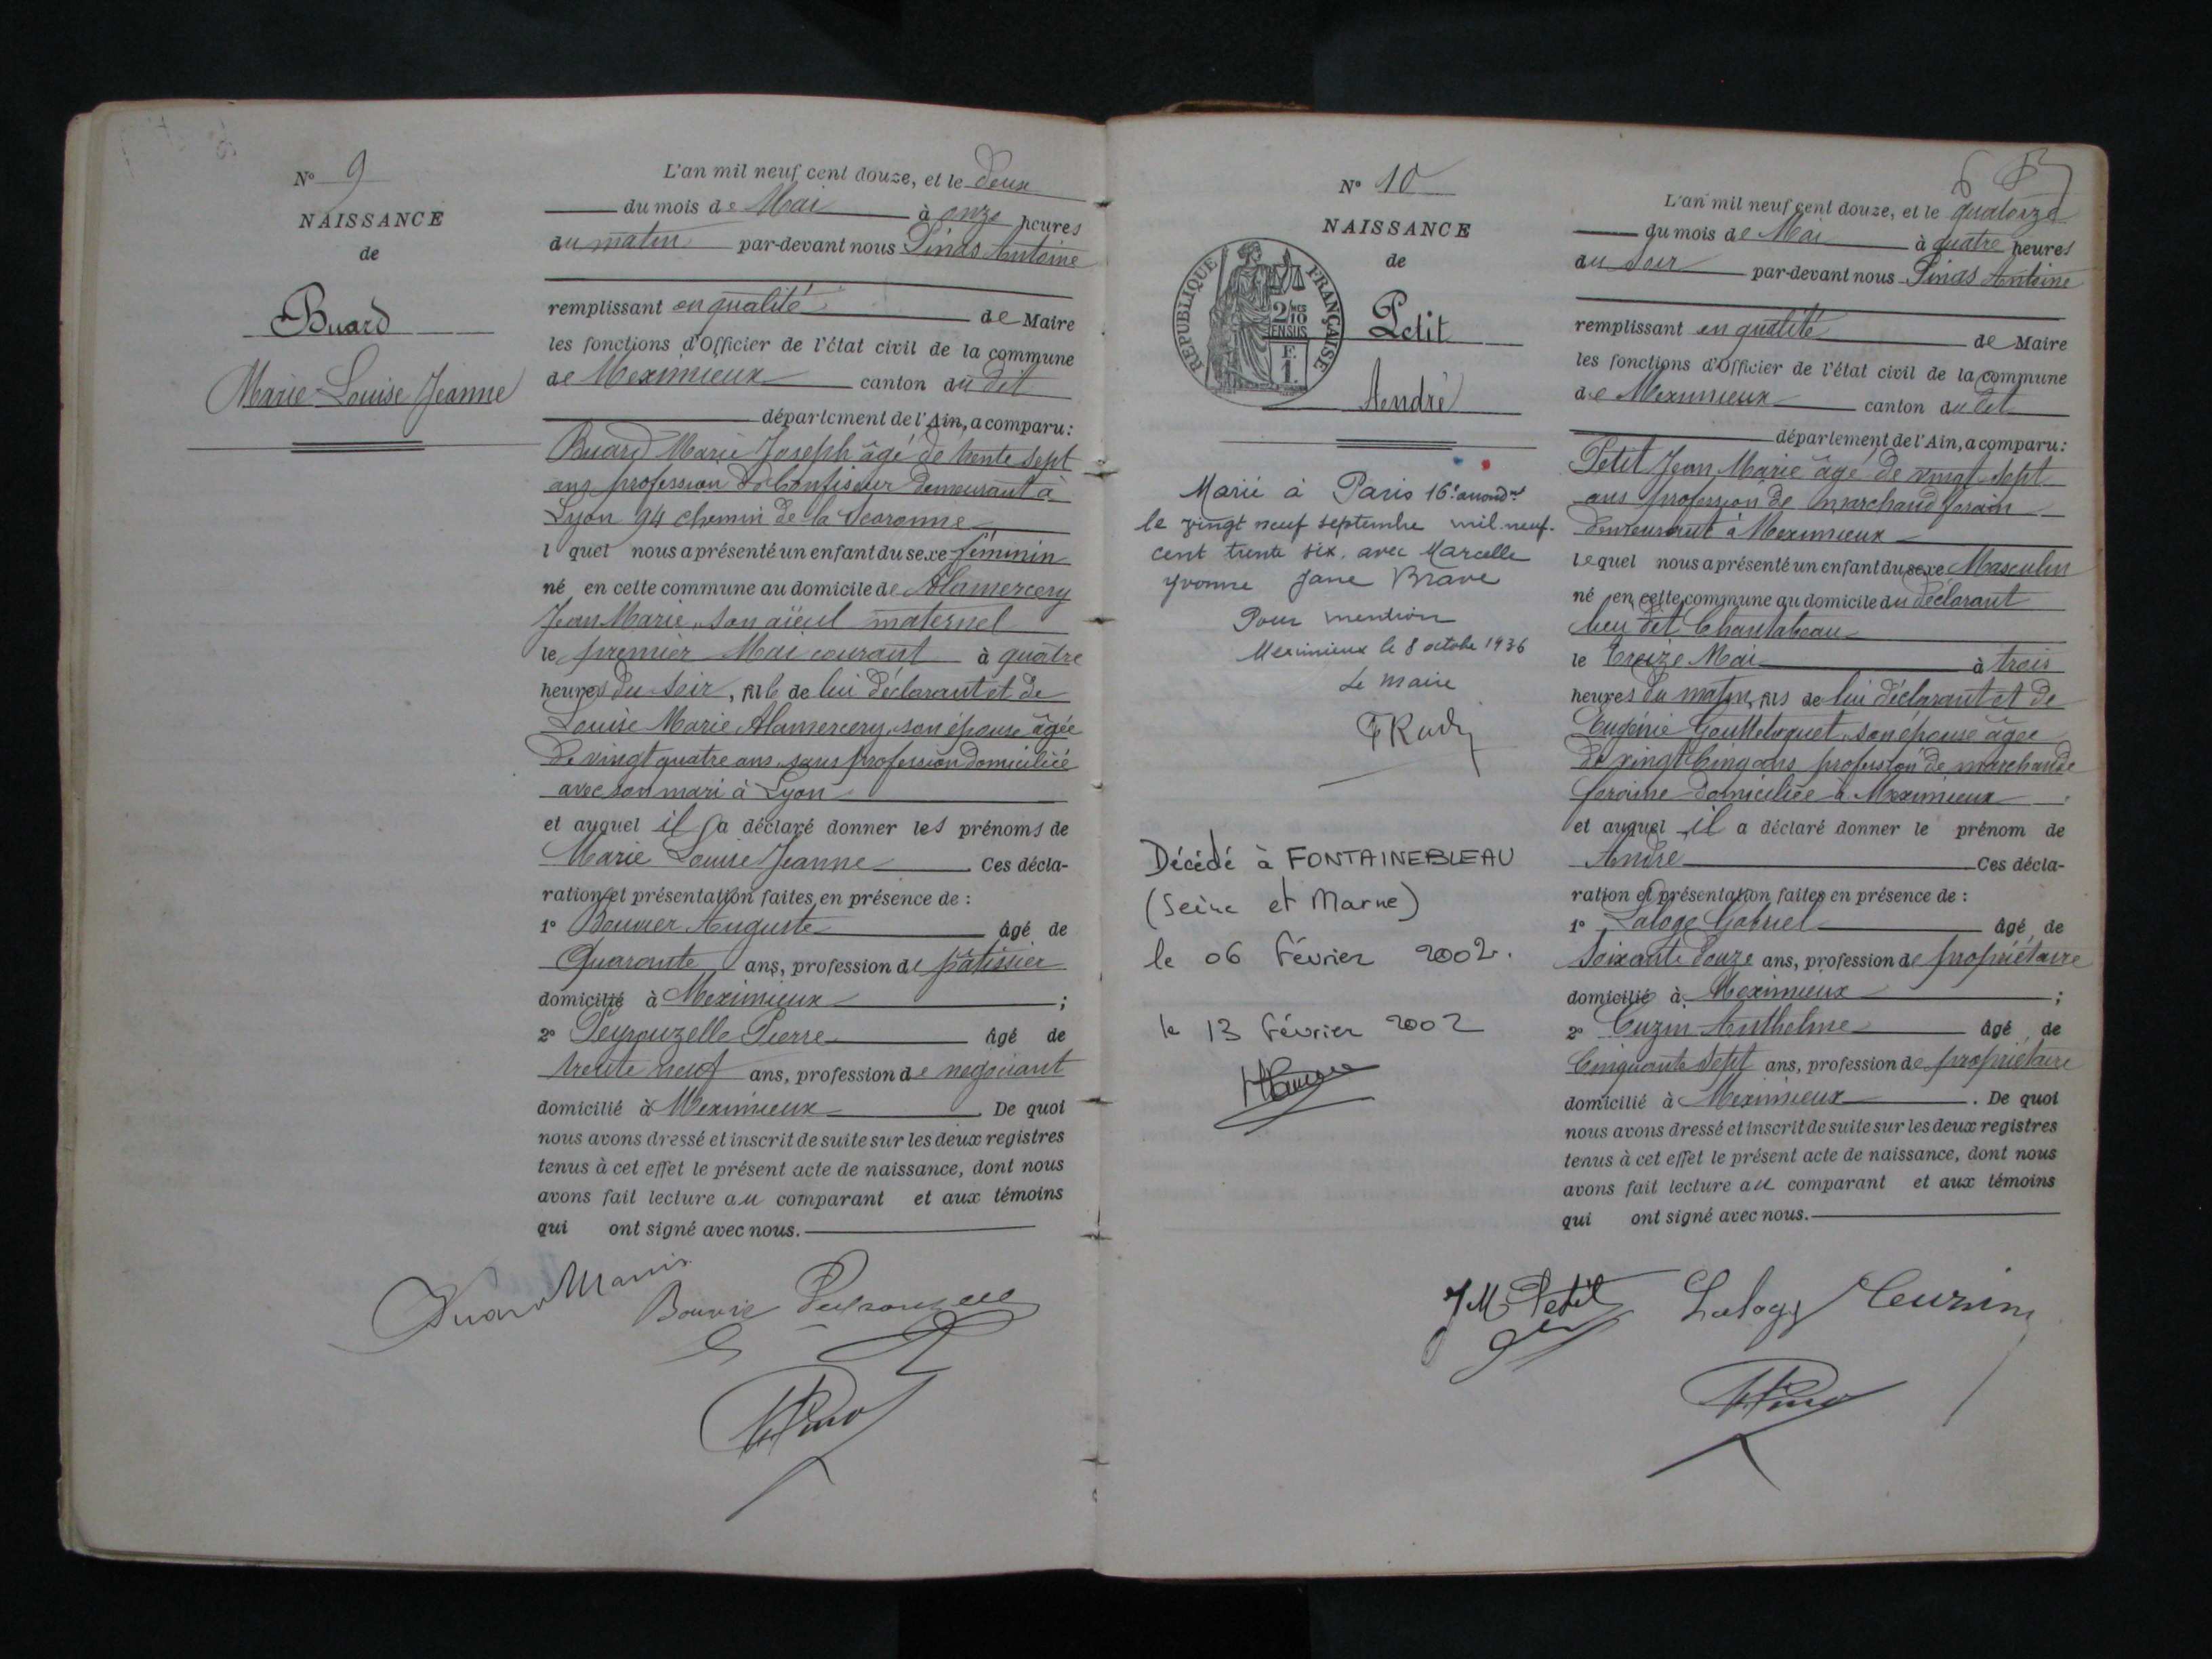 N° 9
NAISSANCE
de
Buard
Marie-Louise Jeanne
L'an mil neuf cent douze, et le deux
du mois de Mai à onze heures
du matin par-devant nous Pinas Antoine
remplissant en qualité de Maire
les fonctions d'Officier de l'état civil de la commune
de Meximieux canton du dit
département de l'Ain, a comparu:
Buard Marie Joseph âgé de trente sept
ans profession de Confiseur demeurant à
Lyon 94 chemin de la
l quel nous a présenté un enfant du sexe féminin
né en cette commune au domicile de Alamercery
Jean Marie, son aïeul maternel
le premier Mai courant à quatre
heures du soir, fille de lui déclarant et de
Louise Marie Alamercery, son épouse âgée
de vingt quatre ans, sans profession domiciliée
avec son mari à Lyon
et auquel il a déclaré donner les prénoms de
Marie Louise Jeanne Ces décla-
ration et présentation faites en présence de :
1° Bouvier Auguste âgé de
Quarante ans, profession de pâtissier
domicilié à Meximieux ;
2° Peyrouzelle Pierre âgé de
trente neuf ans, profession de négociant
domicilié à Meximieux. De quoi
nous avons dressé et inscrit de suite sur les deux registres
tenus à cet effet le présent acte de naissance, dont nous
avons fait lecture au comparant et aux témoins
qui ont signé avec nous.
Buard Marie
Bouvier Peyrouzelle
N° 10
NAISSANCE
de
RÉPUBLIQUE FRANÇAISE
2/10 MES
EN SUS
F.
1.
Petit
André
Marié à Paris 16e arrondt
le vingt neuf septembre mil neuf-
cent trente six. avec Marcelle
Yvonne Jane Brave
Pour mention
Meximieux le 8 octobre 1936
Le Maire
Décédé à FONTAINEBLEAU
(Seine et Marne)
le 06 Février 2002.
le 13 Février 2002
L'an mil neuf cent douze, et le quatorze
du mois de Mai à quatre heures
du soir par-devant nous Pinas Antoine
remplissant en qualité de Maire
les fonctions d'Officier de l'état civil de la commune
de Meximieux canton du dit
département de l'Ain, a comparu:
Petit Jean Marie âgé de vingt sept
ans profession de marchand forain
demeurant à Meximieux
lequel nous a présenté un enfant du sexe Masculin
né en cette commune au domicile du déclarant
lieu dit Chantabeau
le treize Mai à trois
heures du matin, fils de lui déclarant et de
Eugénie son épouse âgée
de vingt cinq ans profession de marchande
foraine domiciliée à Meximieux
et auquel il a déclaré donner le prénom de
André Ces décla-
ration et présentation faites en présence de :
1° Laloge Gabriel âgé de
Soixante douze ans, profession de propriétaire
domicilié à Meximieux ;
2° Cuzin Anthelme âgé de
Cinquante sept ans, profession de propriétaire
domicilié à Meximieux. De quoi
nous avons dressé et inscrit de suite sur les deux registres
tenus à cet effet le présent acte de naissance, dont nous
avons fait lecture au comparant et aux témoins
qui ont signé avec nous.
J M Petit Laloge Cuzin